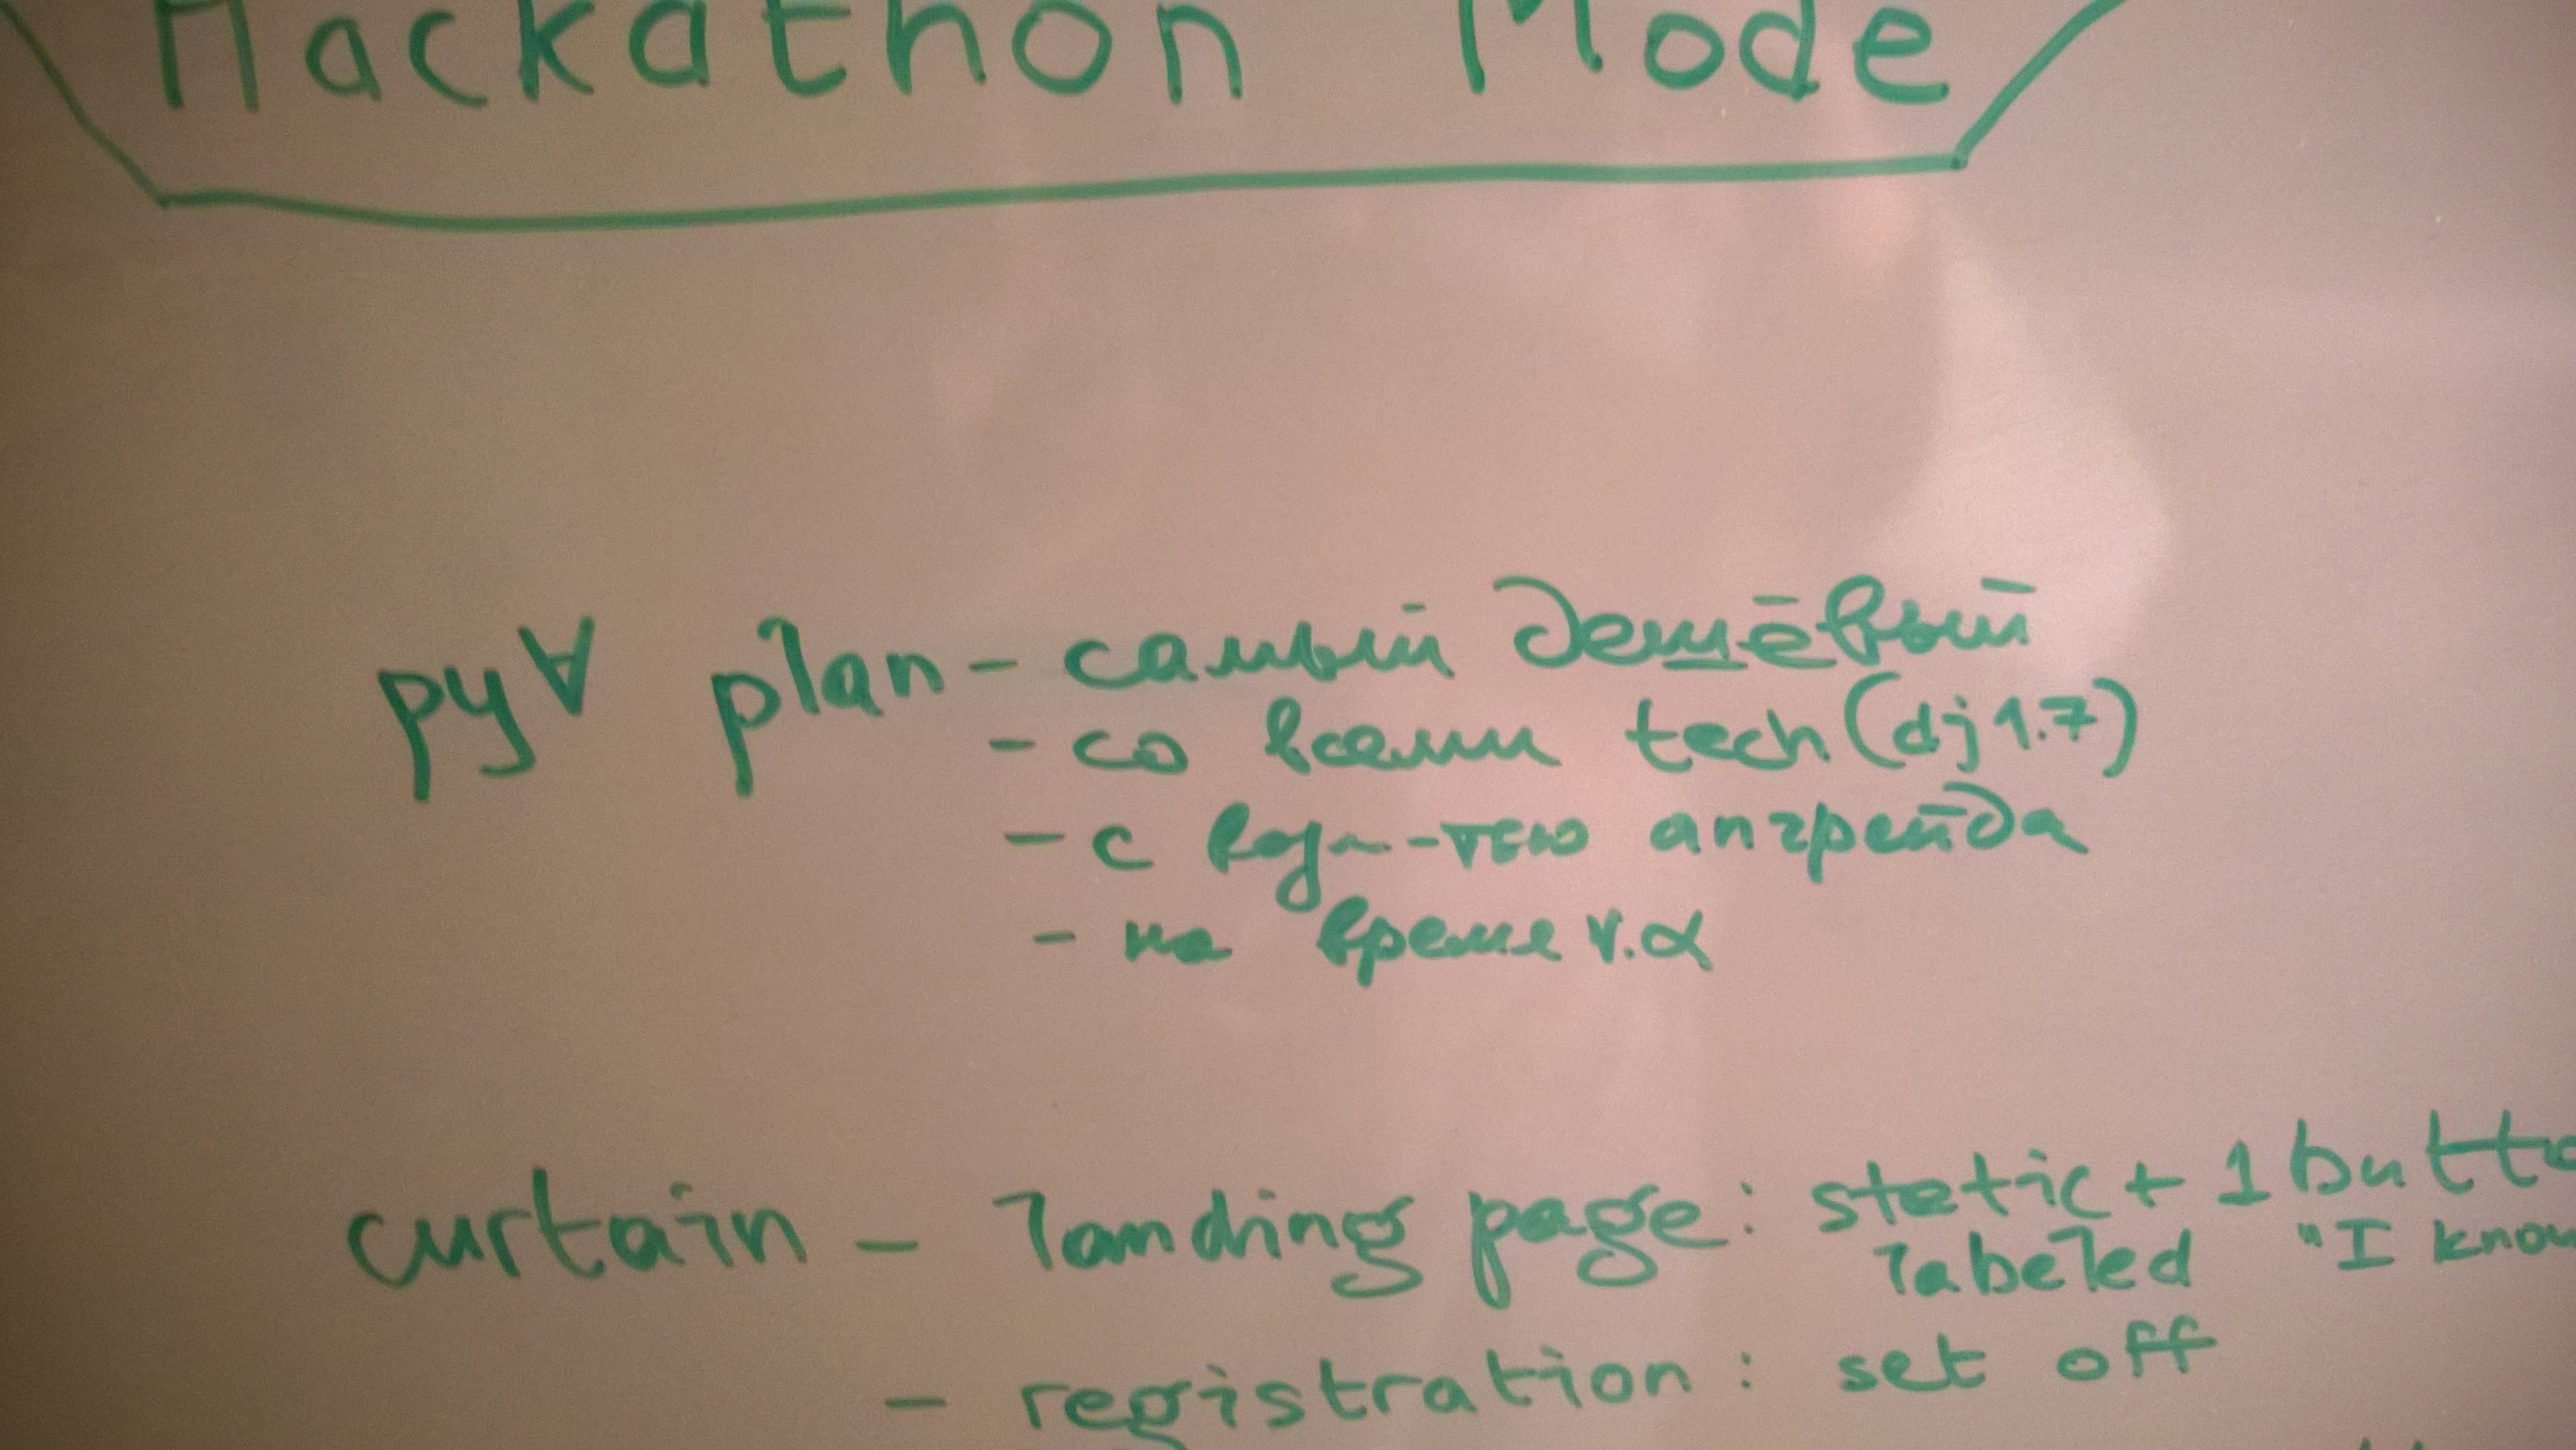 Hackathon Mode
py∀ plan - самый дешёвый
- со всеми tech (dj 1.7)
- с возм-тью апгрейда
- на время v.α
curtain - landing page: static + 1 butto
labeled "I know
- registration: set off